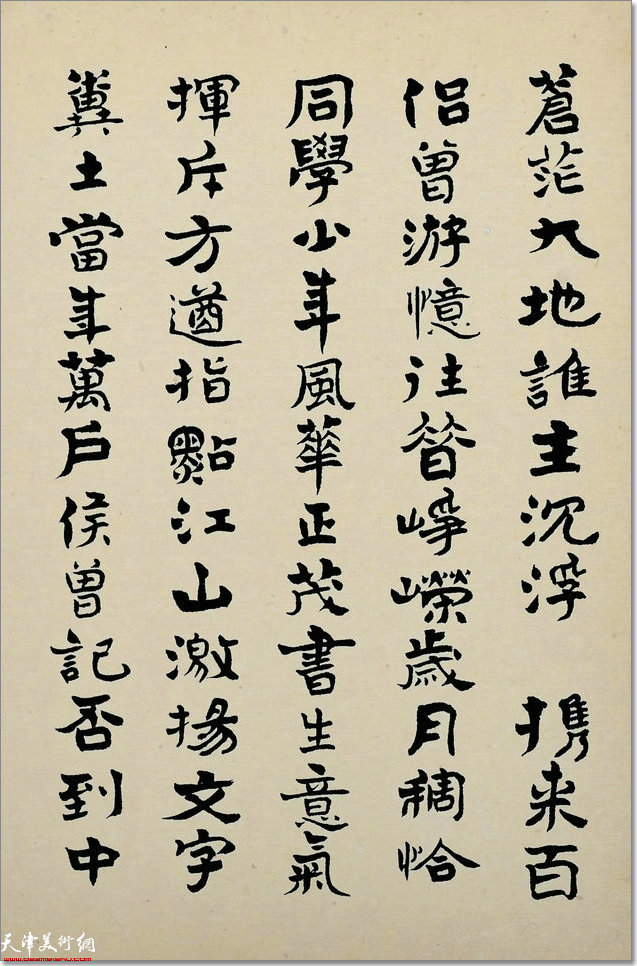 蒼茫大地誰主沉浮 携来百
侣曾游憶往昔崢嶸歲月稠恰
同學少年風華正茂書生意氣
揮斥方遒指點江山激揚文字
糞土當年萬户侯曾記否到中
天津美術網